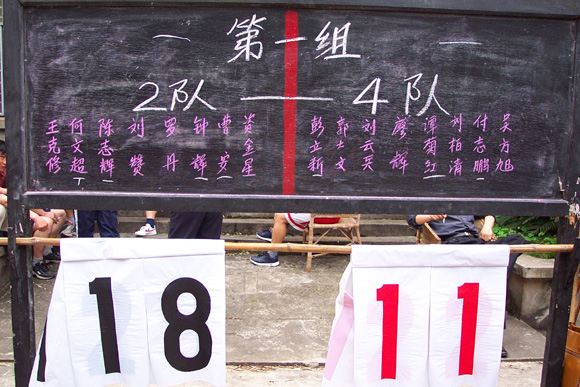 第一组
2队 — 4队
王克修 何文超 陈志辉 刘赞 罗丹 钟辉 曹岁 黄金星
彭立新 郭士文 刘云天 廖辉 谭菊红 刘柏清 付志鹏 吴方旭
18 11